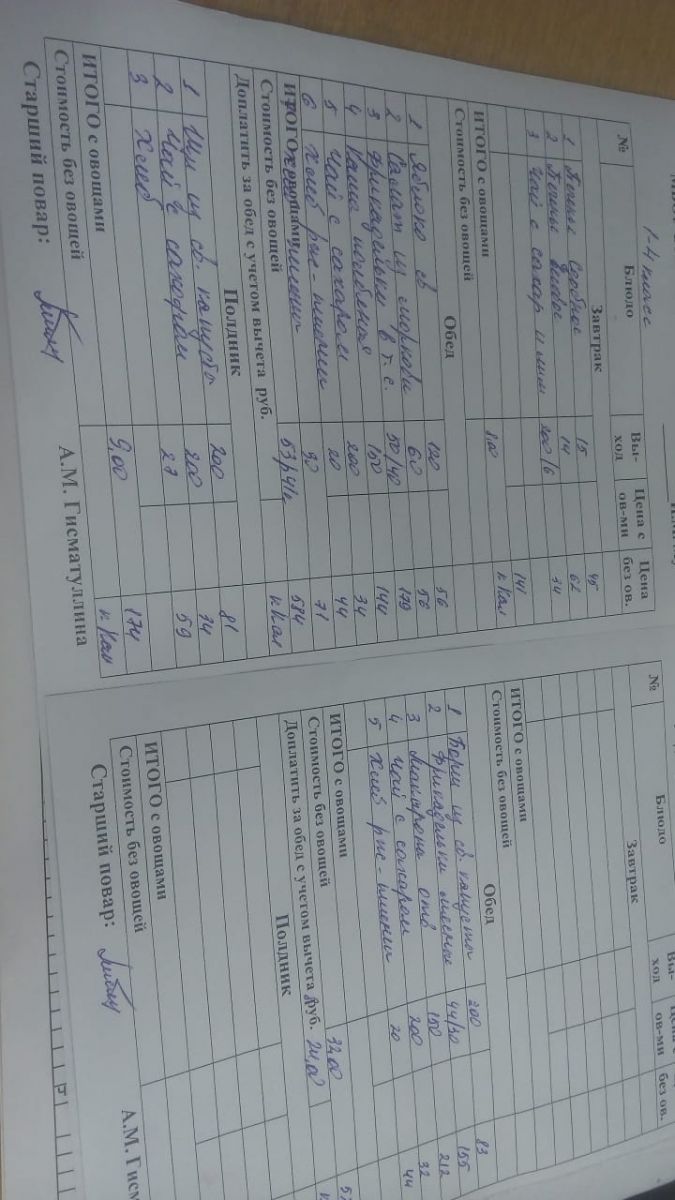 1-4 класс
№ Блюдо Вы-ход Цена с ов-ми Цена без ов.
Завтрак
1 15 45
2 14 62
3 Чай с сахар и лим 200/6 34
ИТОГО с овощами 141
Стоимость без овощей 8,00 к Кал
Обед
1 Яблоко св 120 56
2 Салат из моркови 60 56
3 Фрикадельки в т.с. 50/40 179
4 Каша 150 144
5 Чай с сахаром 200 34
6 Хлеб рже-пшенич 20 44
30 71
ИТОГО с овощами 584
Стоимость без овощей 53р41к к Кал
Доплатить за обед с учетом вычета руб.
Полдник
1 Щи из св. капусты 200 81
2 Чай с сахаром 200 34
3 Хлеб 27 59
ИТОГО с овощами 174
Стоимость без овощей 9,00 к Кал
Старший повар: А.М. Гисматуллина
№ Блюдо Вы-ход ов-ми без ов.
Завтрак
ИТОГО с овощами
Стоимость без овощей
Обед
1 Борщ из св. капусты 200 83
2 Фрикадельки мясные 44/30 155
3 Макароны отв 150 212
4 Чай с сахаром 200 32
5 Хлеб рже-пшенич 20 44
ИТОГО с овощами
Стоимость без овощей 32,00
Доплатить за обед с учетом вычета руб. 24,00
Полдник
ИТОГО с овощами
Стоимость без овощей
Старший повар: А.М. Гис